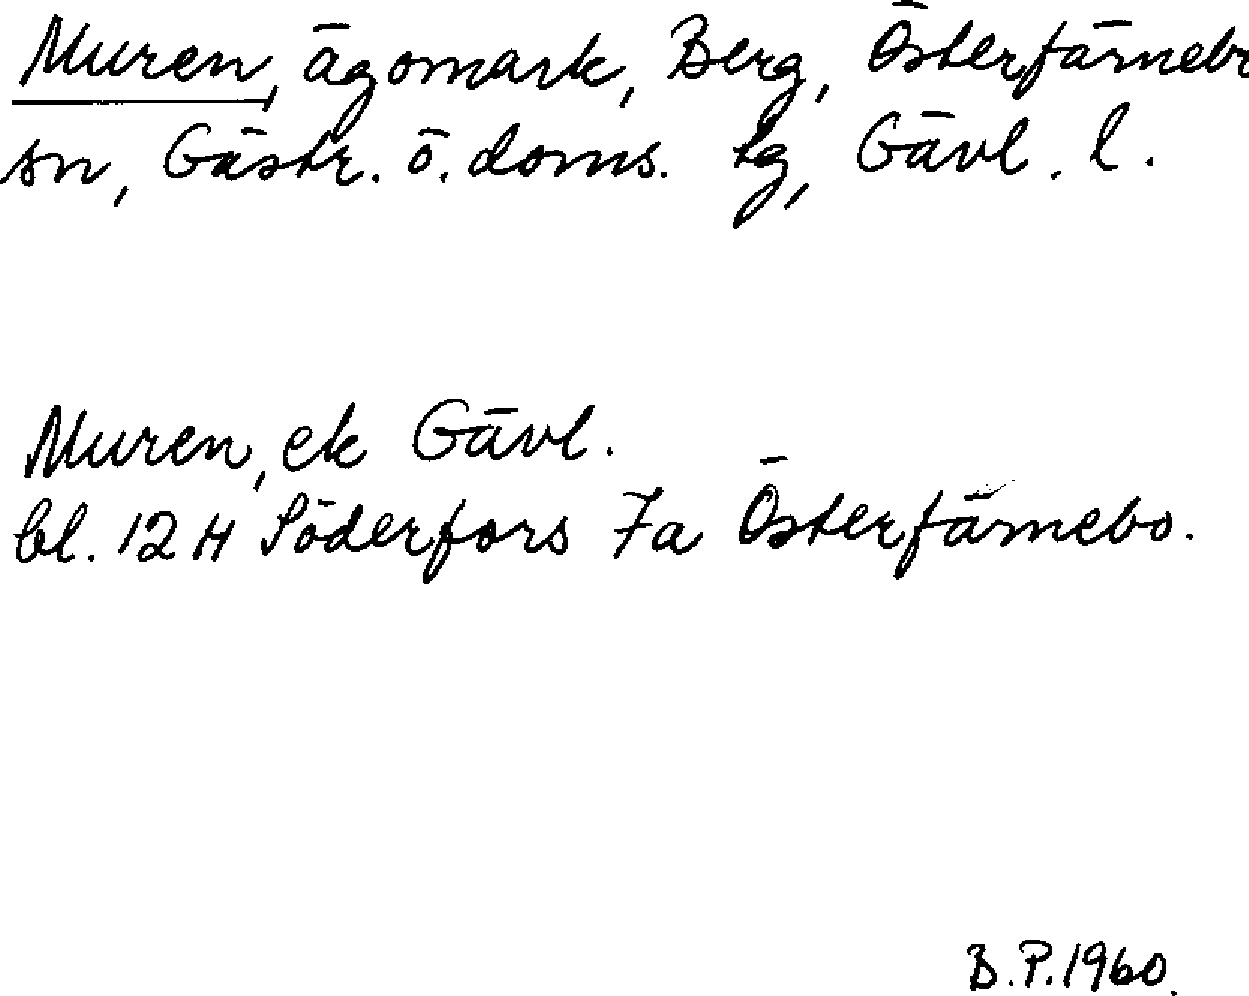 Muren, ägomark, Berg, Österfärnebo
sn, Gästr. ö. doms. lg, Gävl. l.
Muren, ek Gävl.
bl. 12 H Söderfors 7a Österfärnebo.
B.P.1960.